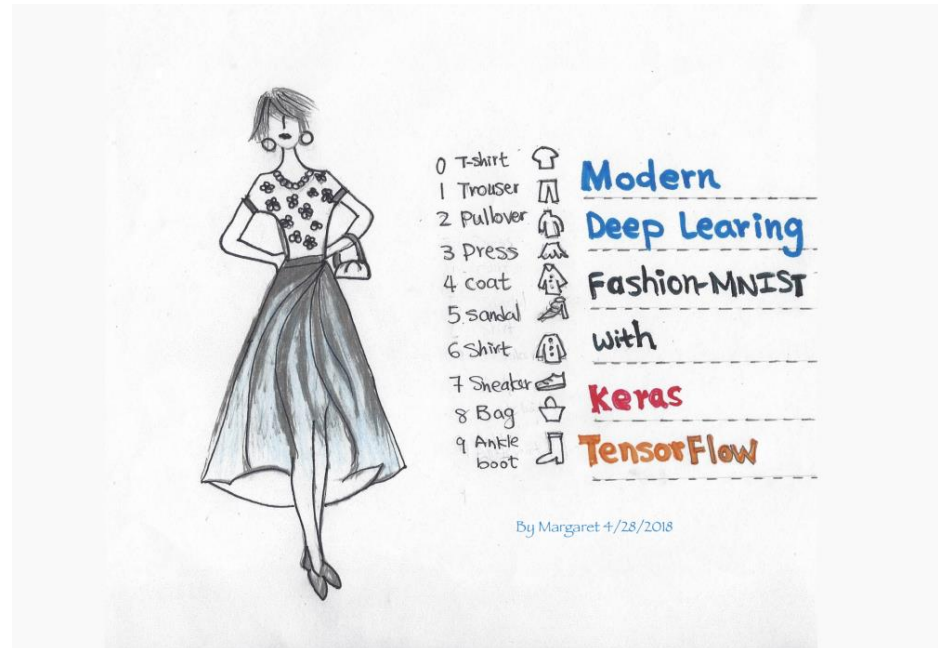 0 T-shirt
1 Trouser
2 Pullover
3 Dress
4 coat
5 Sandal
6 Shirt
7 Sneaker
8 Bag
9 Ankle
boot
Modern
Deep Learing
Fashion-MNIST
with
Keras
TensorFlow
By Margaret 4/28/2018